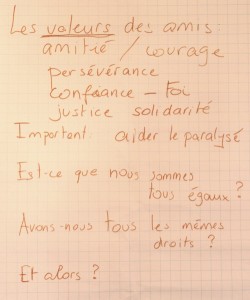 Les valeurs des amis :
amitié / courage
persévérance
confiance - foi
justice solidarité
Important : aider le paralysé
Est-ce que nous sommes
tous égaux ?
Avons-nous tous les mêmes
droits ?
Et alors ?